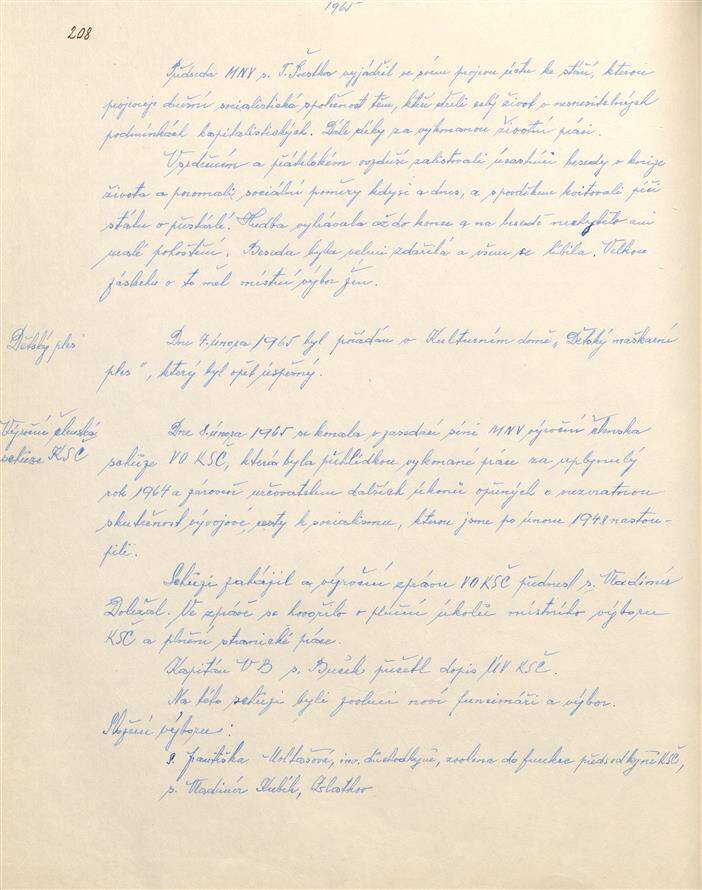 1965
208
Předseda MNV s. F. Švestka vyjádřil ve svém projevu úctu ke stáří, kterou
projevuje dnešní socialistická společnost těm, kteří dželi celý život v nesnesitelných
podmínkách kapitalistických. Dále díky za vykonanou životní práci.
V srdečném a přátelském ovzduší zalistovali účastníci besedy v knize
života a porovnali sociální poměry kdysi a dnes, a s povděkem kvitovali péči
státu o přestárlé. Hudba vyhrávala až do konce a na besedě nechybělo ani
malé pohoštění. Beseda byla velmi zdařilá a všem se líbila. Velkou
zásluhu o to měl místní výbor žen.
Dětský ples
Dne 7. února 1965 byl pořádán v Kulturním domě „Dětský maškarní
ples", který byl opět úspěšný.
Výroční členská
schůze KSČ
Dne 8. února 1965 se konala v zasedací síni MNV výroční členska
schůze VO KSČ, která byla přehlídkou vykonané práce za uplynulý
rok 1964 a zároveň určovatelem dalších úkonů opřených o nezvratnou
skutečnost vývojové cesty k socialismu, kterou jsme po únoru 1948 nastou-
pili.
Schůzi zahájil a výroční zprávu VO KSČ přednesl s. Vladimír
Doležal. Ve zprávě se hovořilo o plnění úkolů místního výboru
KSČ a plnění stranické práce.
Kapitán VB s. Buček přečetl dopis ÚV KSČ.
Na této schůzi byli zvoleni noví funcionáři a výbor.
Složení výboru:
s. Františka inv. důchodkyně, zvolena do funkce předsedkyně KSČ,
s. Vladimír Kubík,